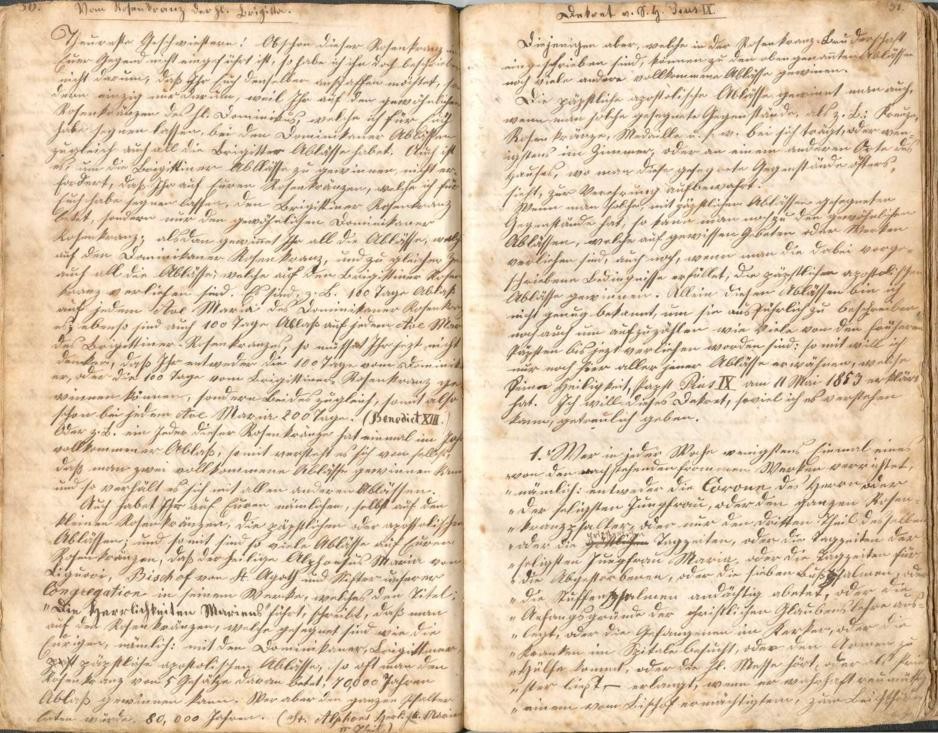 50.
Vom Rosenkranz der hl. Brigitta.
Theureste Geschwistern! Obschon dieser Rosenkranz in
Euer Gegend nicht eingeführt ist, so habe ich ihn doch beschrieben
nicht darum, daß Ihr Euch denselben anschaffen möchtet, son
dern einzig nur darum, weil Ihr auf den gewöhnlichen
Rosenkränzen des hl. Dominikus, welche ich für Euch
habe segnen lassen, bei den Dominikaner Abläßen
zugleich auch all die Brigitter Abläße habet. Auch ist
es um die Brigittiner Abläße zu gewinnen nicht er-
fordert, daß Ihr auf Euren Rosenkränzen, welche ich für
Euch habe segnen lassen, den Brigittiner Rosenkranz
betet, sondern nur den gewöhnlichen Dominikaner
Rosenkranz; alsdan gewinnet Ihr all die Abläße, welche
auf den Dominikaner Rosenkranz, und zu gleicher
auch all die Abläße, welche auf den Brigittiner Rosen
kranz verliehen sind. Es sind z. B. 100 Tage Ablaß
auf jedem Ave Maria des Dominikaner Rosenkran
es; ebenso sind auch 100 Tage Ablaß auf jedem Ave Mar
des Brigittiner-Rosenkranzes, so müßet Ihr jezt nicht
denken, daß Ihr entweder die 100 Tage vom Dominik
er, oder die 100 Tage vom Brigittiner Rosenkranz ge
winnen können, sondern Beides zugleich, somit also
schon bei jedem Ave Maria 200 Tage. (Benedict XIII.)
Oder z. B. ein jeder dieser Rosenkränze hat einmal im Jahr
vollkommener Ablaß, somit versteht es sich von selbst
daß man zwei vollkommene Abläße gewinnen kan
und so verhält es sich mit allen anderen Abläßen.
Auch habet Ihr auf Euren nämlichen, selbst auf den
kleinen Rosenkränzen, die päpstlichen oder apostolischen
Abläßen; und somit sind so viele Abläße auf Euren
Rosenkränzen, daß der heilige Alphonsus Maria von
Liguori, Bischof von St. Agatha und Stifter unserer
Congregation in seinem Werke, welches den Titel:
"Die Herrlichkeiten Mariens führt, schreibt, daß man
auf den Rosenkränzen, welche gesegnet sind wie die
Eurigen, nämlich: mit den Dominikaner, Brigittiner
päpstliche apostolischen Abläße, so oft man den
Rosenkranz von 5 Gesätze daran betet, 70000 Jahren
Ablaß gewinnen kann. Wer aber den ganzen Psalter
beten würde 80,000 Jahren. (St. Alphons Herrlichk. Marien
II Theil.)
Dekret v. S. H. Pius IX.
51.
Diejenigen aber, welche in der Rosenkranz-Bruderschaft
eingeschrieben sind, können zu den obengenanten Abläßen
noch viele andere vollkommene Abläße gewinnen.
Die päpstliche apostolische Abläße gewinnt man auch,
wenn man solche gesegnete Gegenstände, als z. B.: Kreuze,
Rosenkränze, Medaille u. s. w. bei sich trägt, oder we-
nigstens im Zimmer, oder an einem anderen Orte des
Hauses, wo man diese gesegnete Gegenstände öfters
sieht, zur Verehrung aufbewahrt.
Wenn man solche, mit päpstlichen Abläßen gesegneten
Gegenstände hat, so kann man noch zu den gewöhnlichen
Abläßen, welche auf gewissen Gebeten oder Werken
verliehen sind, auch noch, wenn man die dabei vorge-
schriebene Bedingnisse erfüllet, die päpstlichen apostolischen
Abläße gewinnen. Allein diesen Abläßen bin ich
nicht genug bekannt, um sie ausführlich zu beschreiben
noch auch um aufzuzählen wie viele von den früheren
Päpsten bis jezt verliehen worden sind; somit will ich
nur noch hier aller jener Abläße erwähnen, welche
Seine Heiligkeit, Papst Pius IX am 11 Mai 1853 erklärt
hat. Ich will dieses Dekret, soviel ich es verstehen
kann, getreulich geben.
1. Wer in jeder Woche wenigstens Einmal eines
"von den nachstehenden frommen Werken verrichtet,
"nämlich: entweder die Corone des Herrn oder
"der seligsten Jungfrau, oder den ganzen Rosen-
"kranzpsalter, oder nur den dritten Theil desselben
"oder die Tagzeiten, oder die Tagzeiten der
"seligsten Jungfrau Maria, oder die Tagzeiten für
"die Abgestorbenen, oder die sieben Bußpsalmen, oder
"die Stuffenpsalmen andächtig abetet, oder die
"Anfangsgründe der christlichen Glaubenslehre aus-
"legt, oder die Gefangenen im Kerker, oder die
"Kranken im Spitale besucht, oder den Armen zu
"Hülfe kommt, oder die hl. Messe hört, oder als Prie
"ster liest — erlangt, wenn er wahrhaft reumüthig
"einem vom Bischof ermächtigten, zum Beicht